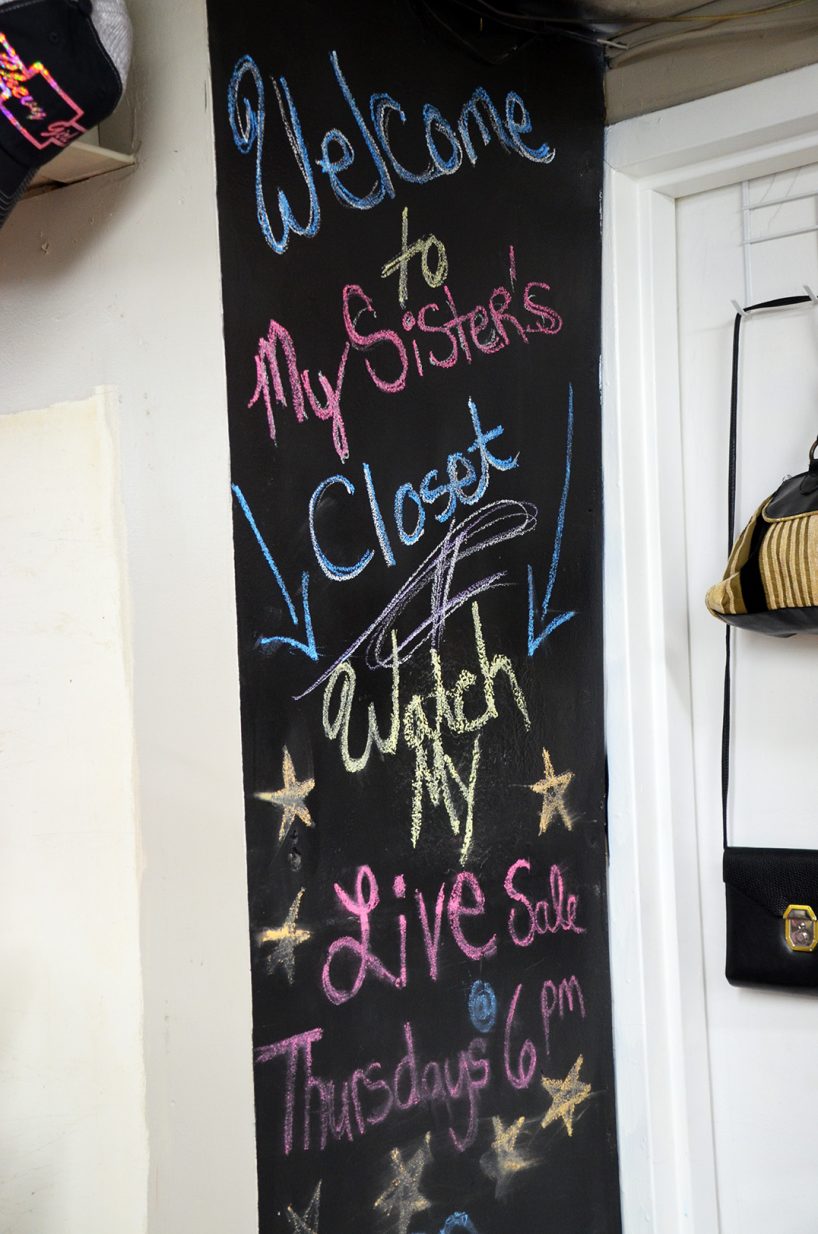 Welcome
to
My Sister's
Closet
Watch
My
Live Sale
@
Thursdays 6 pm